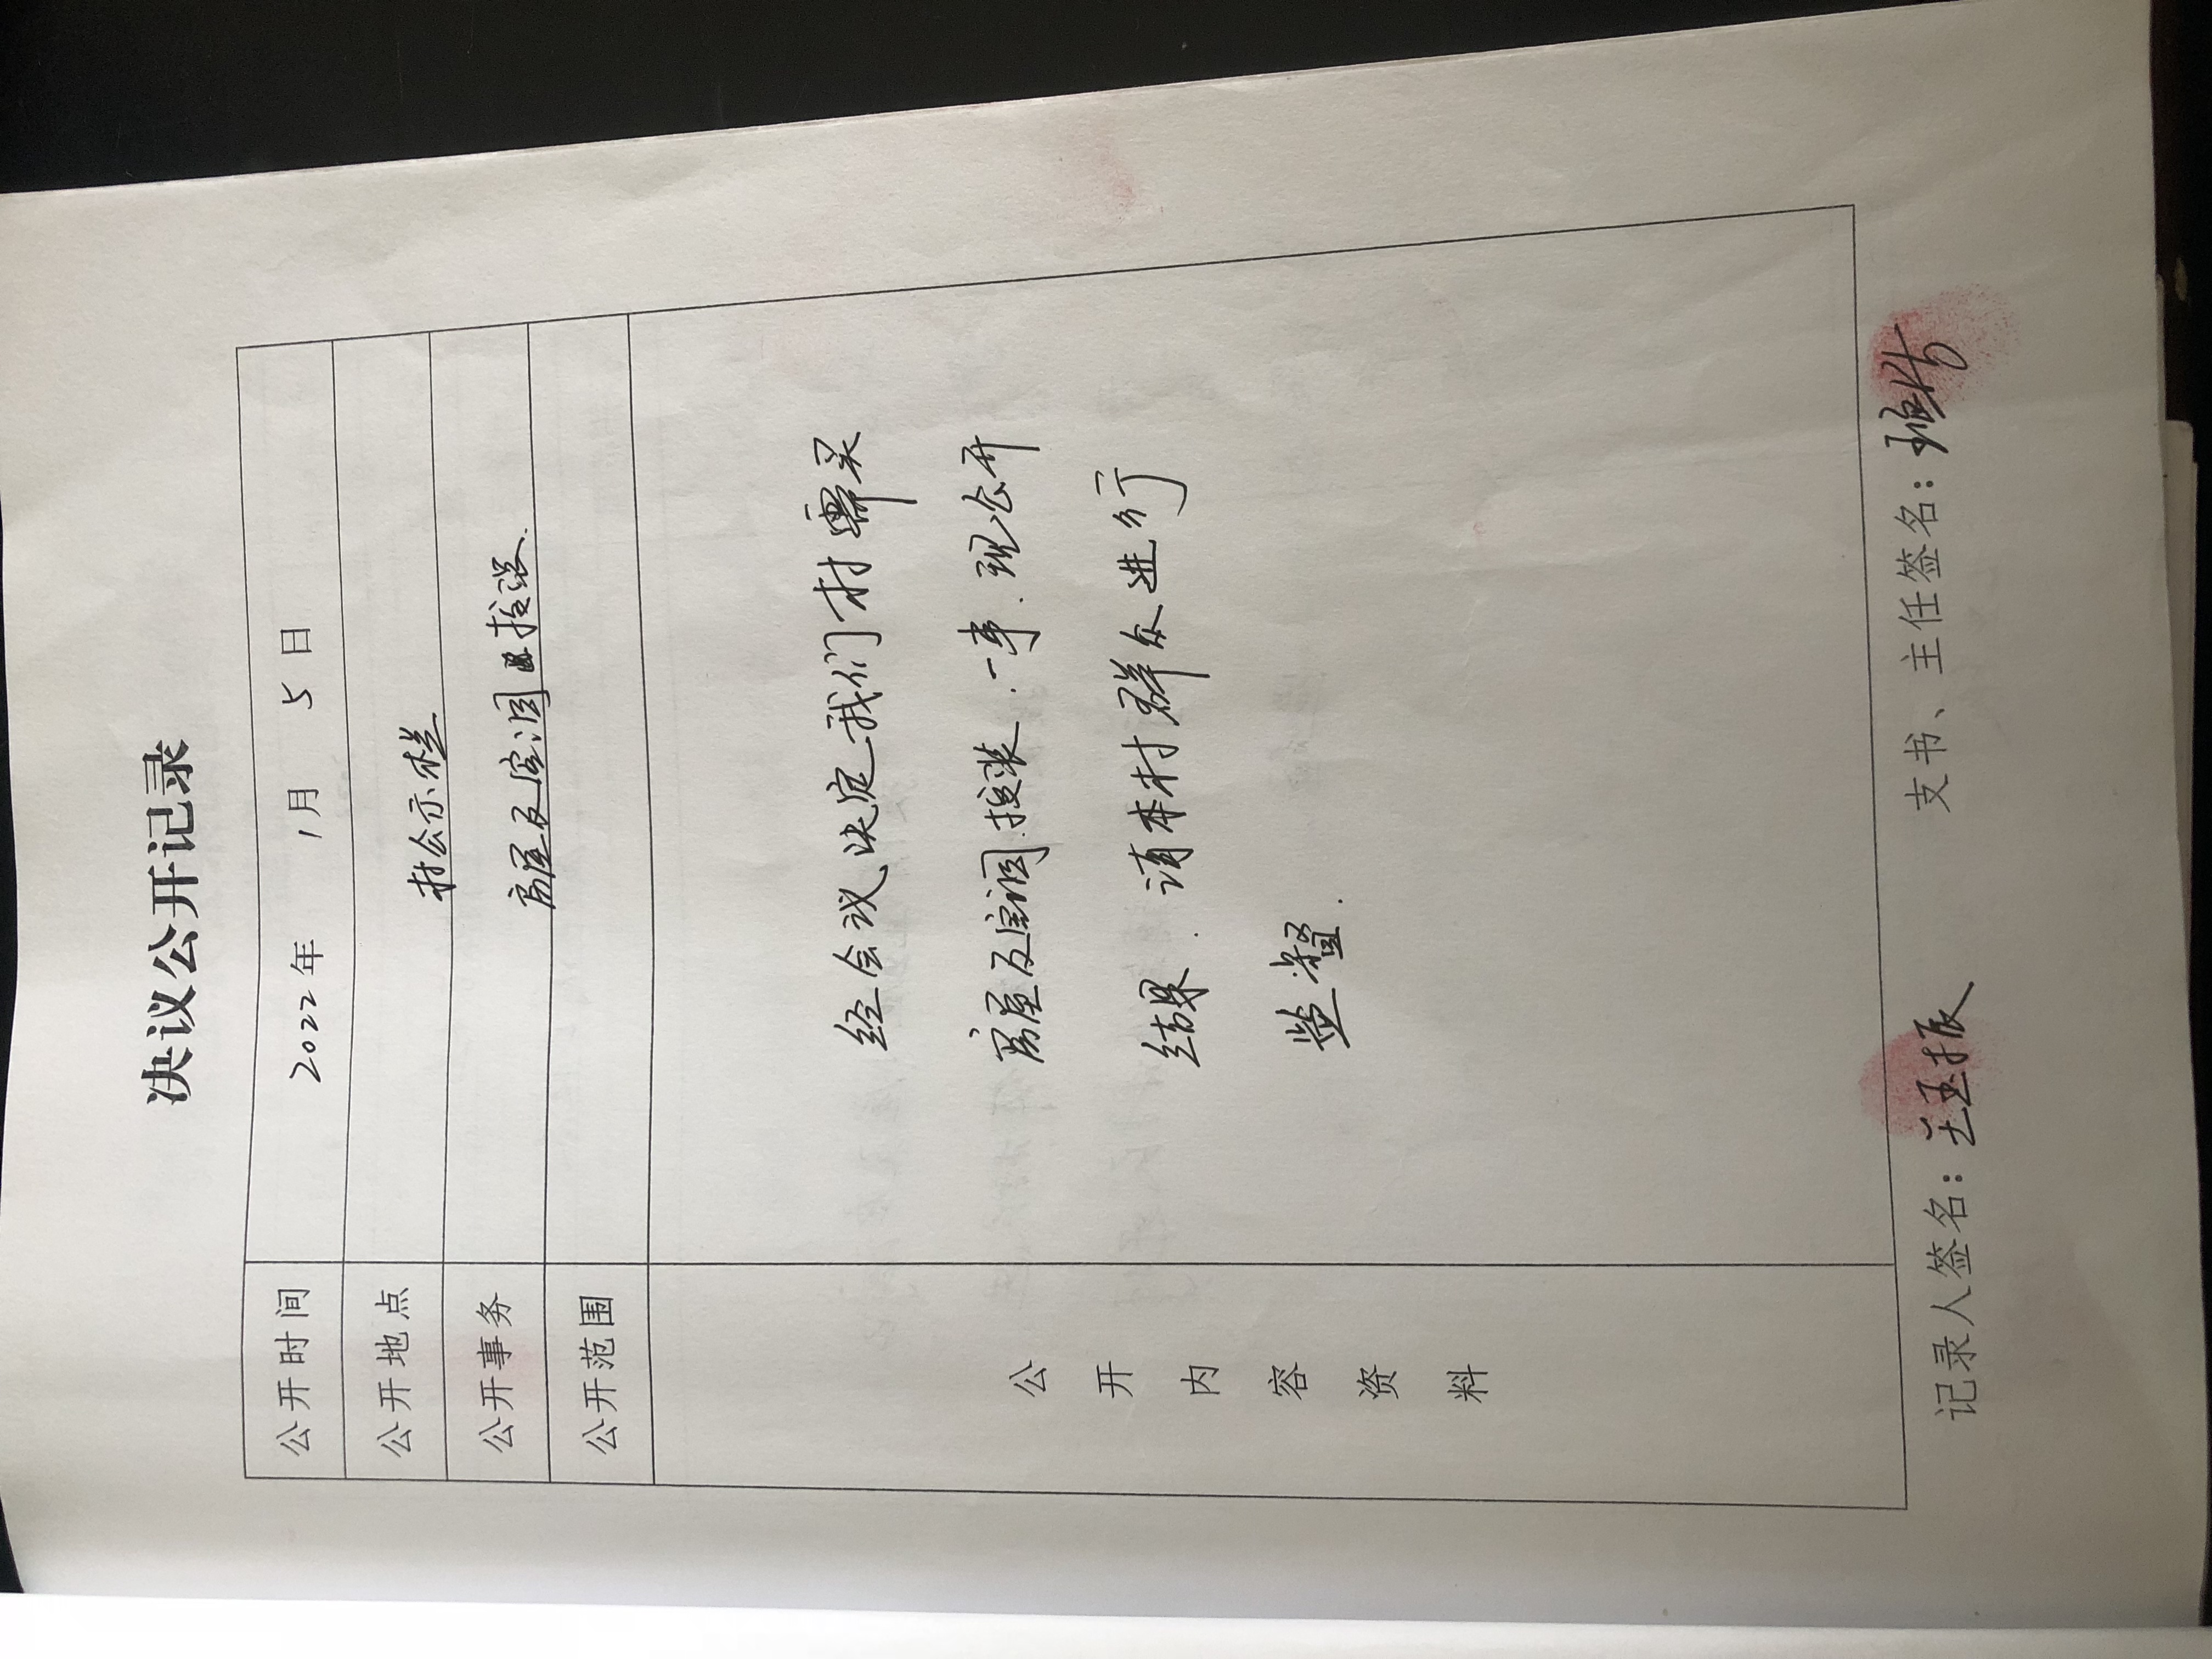 决议公开记录
公开时间 2022年 1月 5日
公开地点 村公示栏
公开事务 房屋及空调按装.
公开范围
公开内容资料
经会议决定我们村需买
房屋及空调按装.一事.现公开
结果.请本村群众进行
监督.
记录人签名：王玉振 支书、主任签名：